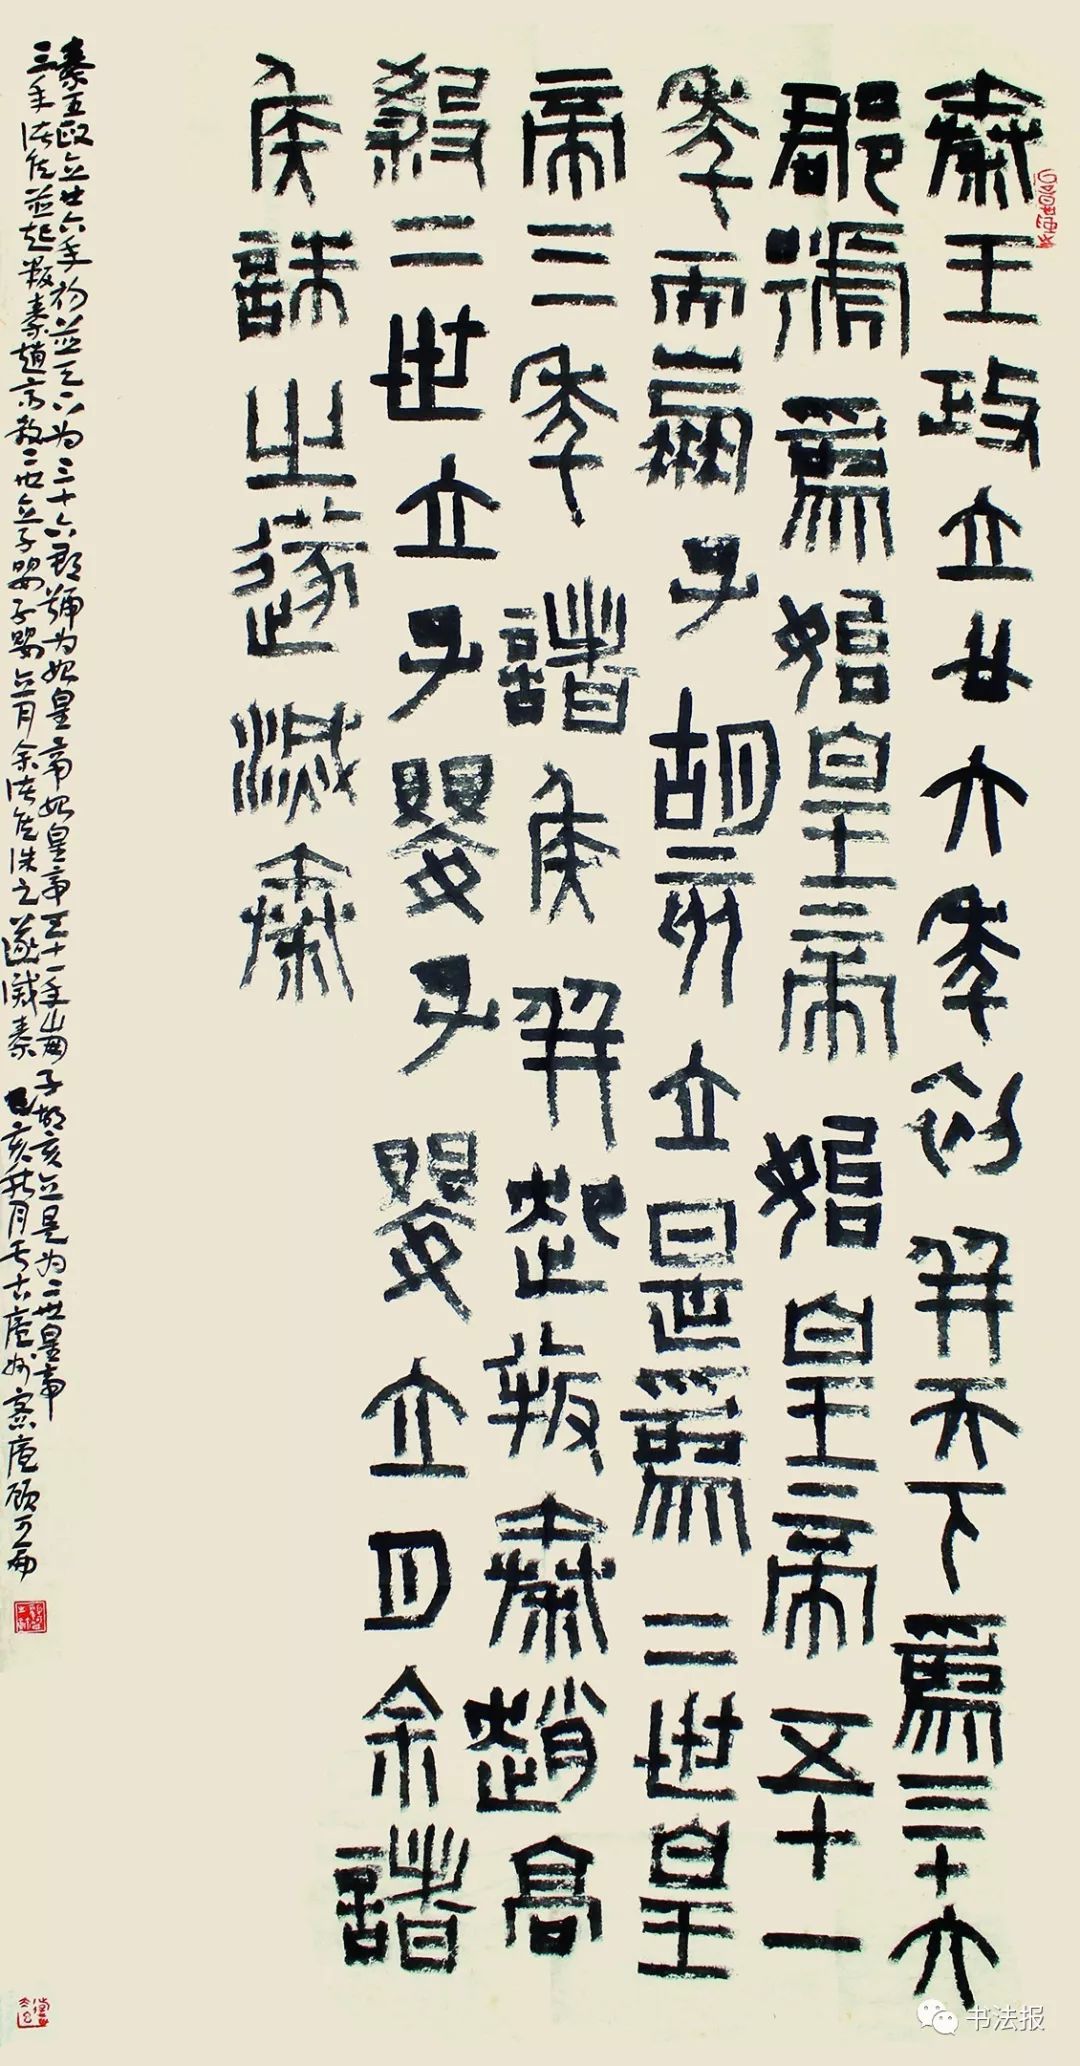 秦王政立廿六年初并天下為三十六
郡號為始皇帝始皇帝五十一
年而崩子胡亥立是為二世皇
帝三年諸侯并起叛秦趙高
殺二世立子嬰子嬰立月余諸
侯誅之遂滅秦
秦王政立廿六年初並天下为三十六郡號为始皇帝始皇帝五十一年崩子胡亥立是为二世皇帝
三年诸侯並起叛秦趙高殺二世立子嬰子嬰立月余诸侯诛之遂滅秦 己亥秋月于古
书法报